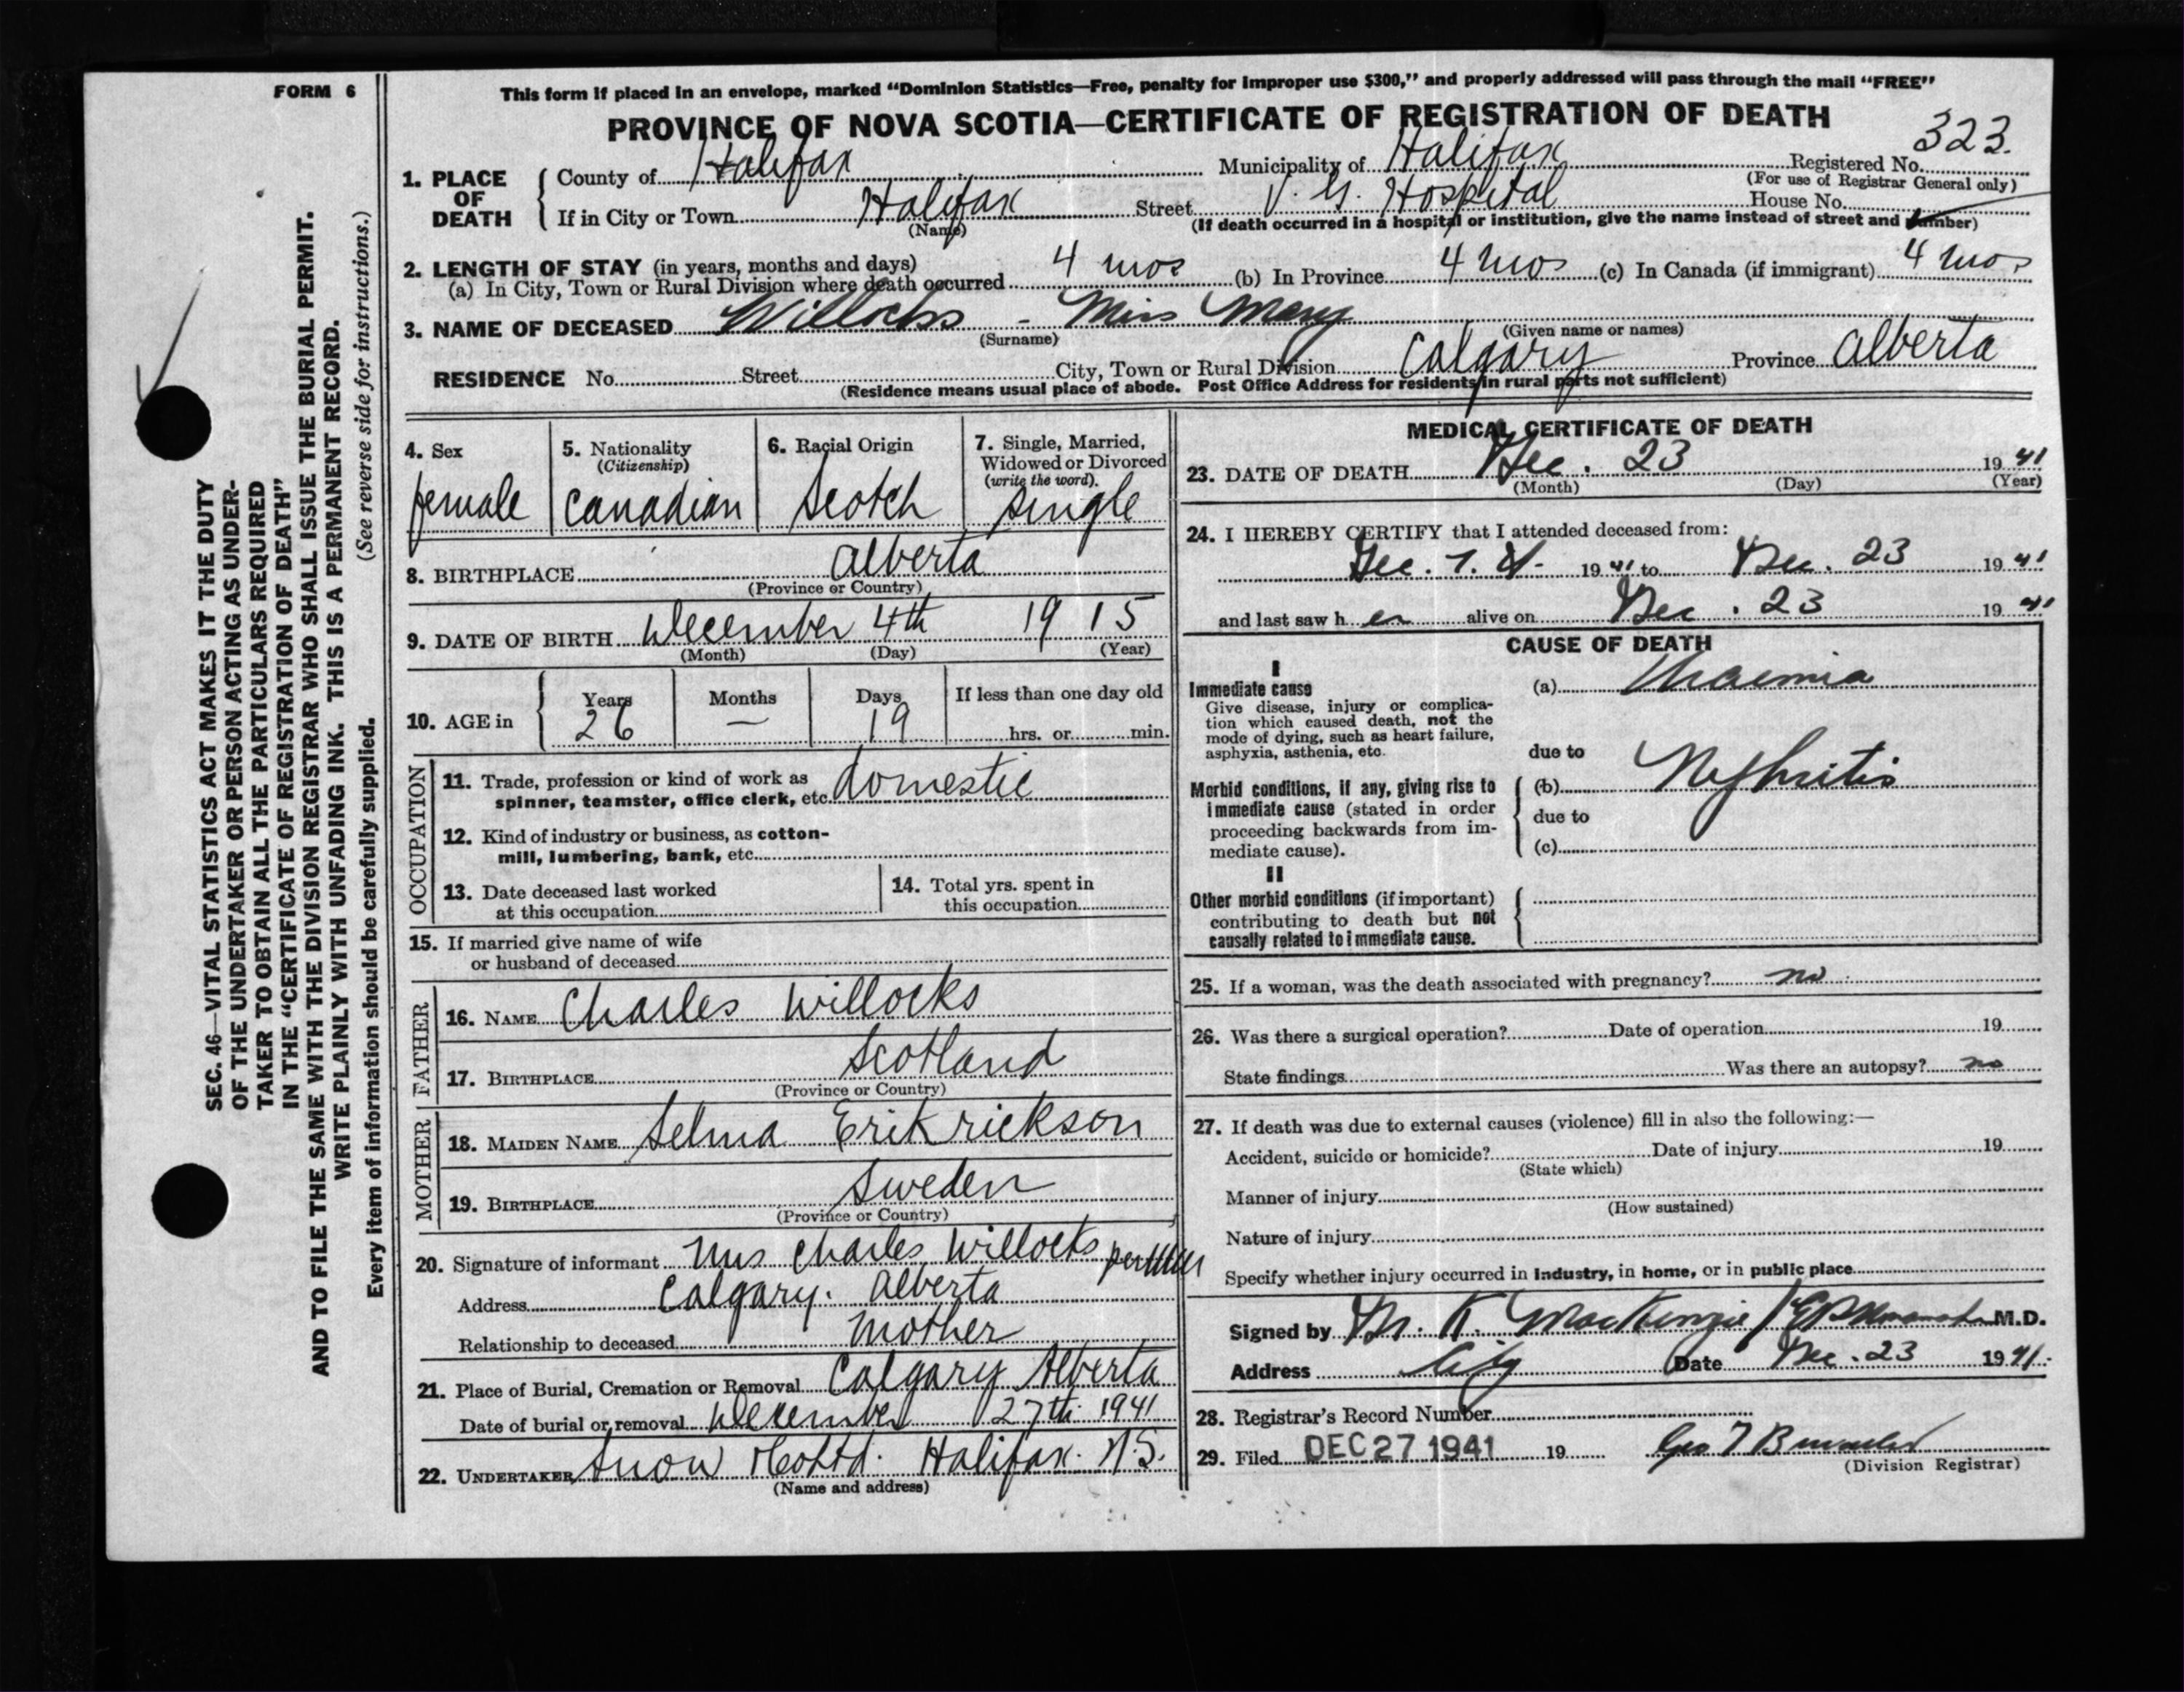 FORM 6
This form if placed in an envelope, marked “Dominion Statistics—Free, penalty for improper use $300,” and properly addressed will pass through the mail “FREE”
PROVINCE OF NOVA SCOTIA—CERTIFICATE OF REGISTRATION OF DEATH
323.
1. PLACE OF DEATH
County of Halifax Municipality of Halifax Registered No.
(For use of Registrar General only)
If in City or Town Halifax Street V. G. Hospital House No.
(Name) (If death occurred in a hospital or institution, give the name instead of street and number)
2. LENGTH OF STAY (in years, months and days)
(a) In City, Town or Rural Division where death occurred 4 mos (b) In Province 4 mos (c) In Canada (if immigrant) 4 mos
3. NAME OF DECEASED Willocks - Miss Mary
(Surname) (Given name or names)
RESIDENCE No. Street City, Town or Rural Division Calgary Province Alberta
(Residence means usual place of abode. Post Office Address for residents in rural parts not sufficient)
4. Sex
female
5. Nationality
(Citizenship)
Canadian
6. Racial Origin
Scotch
7. Single, Married,
Widowed or Divorced
(write the word).
single
8. BIRTHPLACE Alberta
(Province or Country)
9. DATE OF BIRTH December 4th 1915
(Month) (Day) (Year)
10. AGE in
Years Months Days If less than one day old
26 — 19 hrs. or min.
OCCUPATION
11. Trade, profession or kind of work as
spinner, teamster, office clerk, etc. domestic
12. Kind of industry or business, as cotton-
mill, lumbering, bank, etc.
13. Date deceased last worked
at this occupation
14. Total yrs. spent in
this occupation
15. If married give name of wife
or husband of deceased
FATHER
16. NAME Charles Willocks
17. BIRTHPLACE Scotland
(Province or Country)
MOTHER
18. MAIDEN NAME Selma Erikrickson
19. BIRTHPLACE Sweden
(Province or Country)
20. Signature of informant Mrs Charles Willocks per
Address Calgary. Alberta
Relationship to deceased Mother
21. Place of Burial, Cremation or Removal Calgary Alberta
Date of burial or removal December 27th 1941
22. UNDERTAKER Snow & Co Ltd. Halifax. N.S.
(Name and address)
MEDICAL CERTIFICATE OF DEATH
23. DATE OF DEATH Dec. 23 1941
(Month) (Day) (Year)
24. I HEREBY CERTIFY that I attended deceased from:
Dec. 1941 to Dec. 23 1941
and last saw her alive on Dec. 23 1941
CAUSE OF DEATH
I
Immediate cause
Give disease, injury or complica-
tion which caused death, not the
mode of dying, such as heart failure,
asphyxia, asthenia, etc.
(a) Uraemia
due to
Morbid conditions, if any, giving rise to
immediate cause (stated in order
proceeding backwards from im-
mediate cause).
(b) Nephritis
due to
(c)
II
Other morbid conditions (if important)
contributing to death but not
causally related to immediate cause.
25. If a woman, was the death associated with pregnancy? no
26. Was there a surgical operation? Date of operation 19
State findings Was there an autopsy? no
27. If death was due to external causes (violence) fill in also the following:—
Accident, suicide or homicide? Date of injury 19
(State which)
Manner of injury
(How sustained)
Nature of injury
Specify whether injury occurred in industry, in home, or in public place
Signed by K. MacKenzie / M.D.
Address City Date Dec. 23 1941.
28. Registrar's Record Number
29. Filed DEC 27 1941 19 Geo
(Division Registrar)
SEC. 46—VITAL STATISTICS ACT MAKES IT THE DUTY
OF THE UNDERTAKER OR PERSON ACTING AS UNDER-
TAKER TO OBTAIN ALL THE PARTICULARS REQUIRED
IN THE “CERTIFICATE OF REGISTRATION OF DEATH”
AND TO FILE THE SAME WITH THE DIVISION REGISTRAR WHO SHALL ISSUE THE BURIAL PERMIT.
WRITE PLAINLY WITH UNFADING INK. THIS IS A PERMANENT RECORD.
(See reverse side for instructions.)
Every item of information should be carefully supplied.